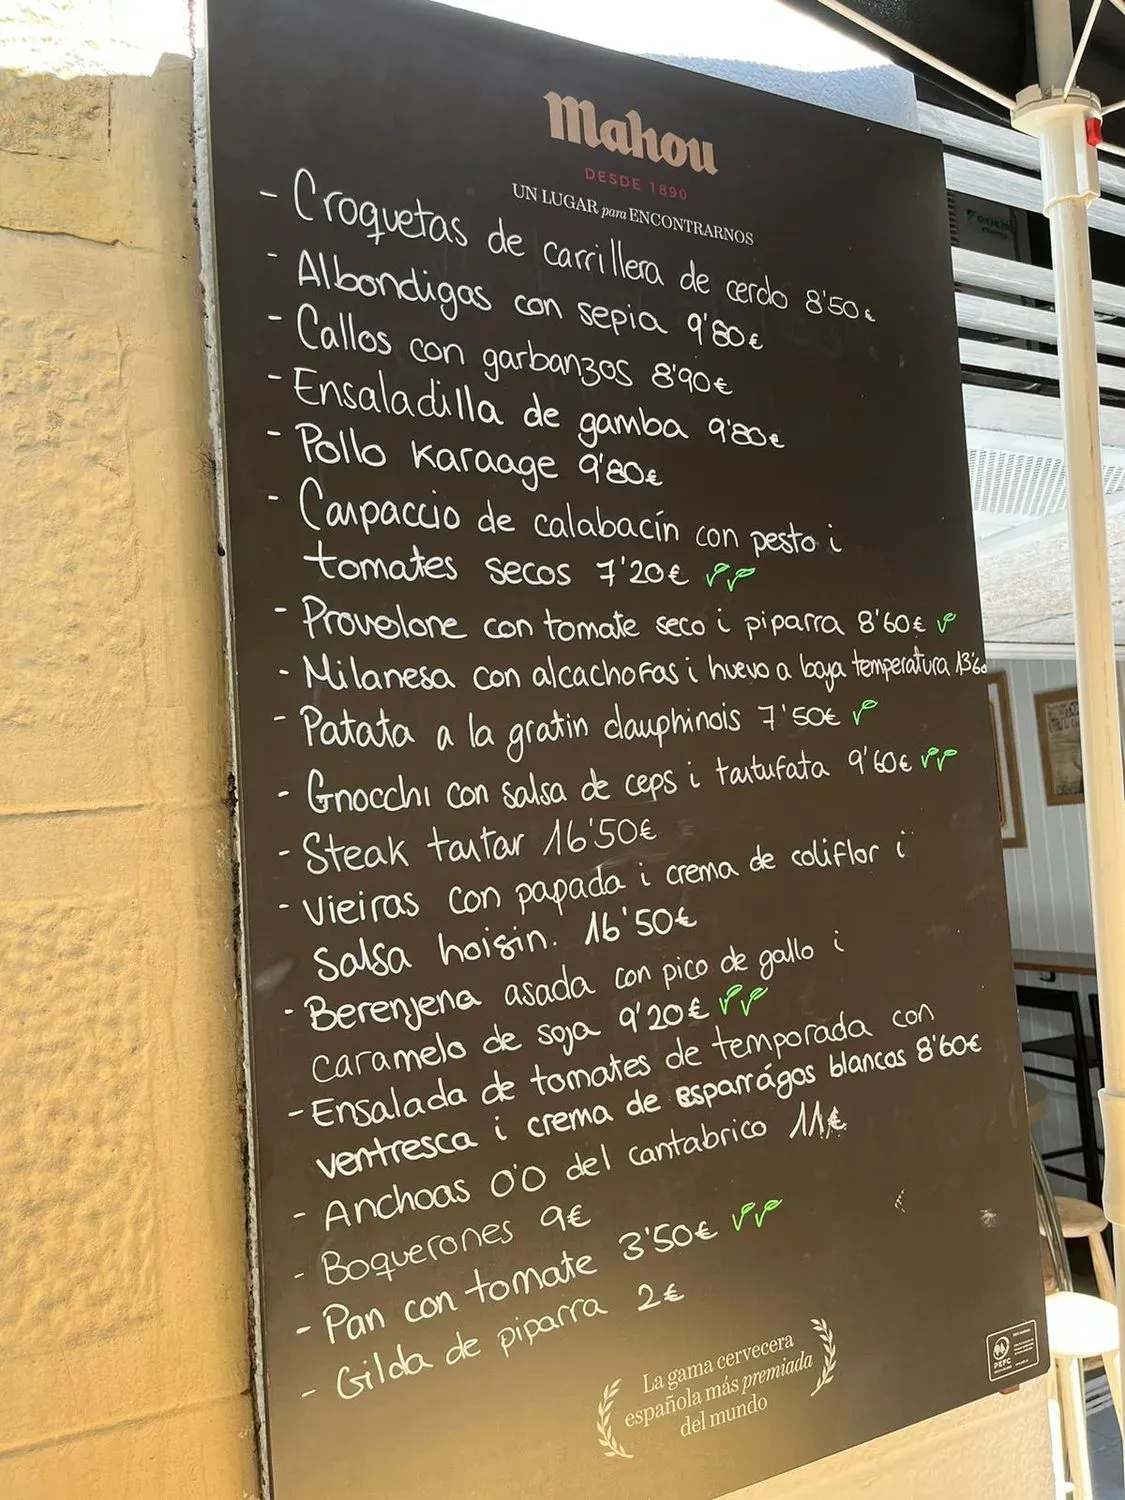 Mahou
DESDE 1890
UN LUGAR para ENCONTRARNOS
- Croquetas de carrillera de cerdo 8'50€
- Albondigas con sepia 9'80€
- Callos con garbanzos 8'90€
- Ensaladilla de gamba 9'80€
- Pollo karaage 9'80€
- Carpaccio de calabacín con pesto i
tomates secos 7'20€
- Provolone con tomate seco i piparra 8'60€
- Milanesa con alcachofas i huevo a baja temperatura 13'60
- Patata a la gratin dauphinois 7'50€
- Gnocchi con salsa de ceps i tartufata 9'60€
- Steak tartar 16'50€
- Vieiras con papada i crema de coliflor i
salsa hoisin. 16'50€
- Berenjena asada con pico de gallo i
caramelo de soja 9'20€
- Ensalada de tomates de temporada con
ventresca i crema de esparrágos blancos 8'60€
- Anchoas 0'0 del cantabrico 11€
- Boquerones 9€
- Pan con tomate 3'50€
- Gilda de piparra 2€
La gama cervecera
española más premiada
del mundo
PEFC